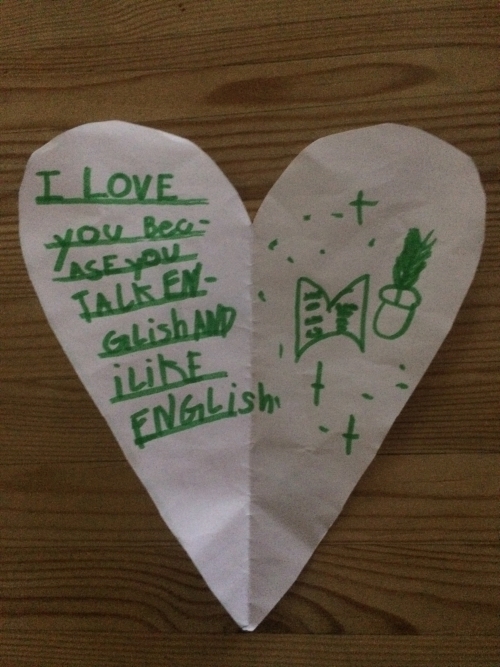 I LOVE
YOU BEC-
ASE YOU
TALK EN-
GLish AND
iLIKE
ENGLish.